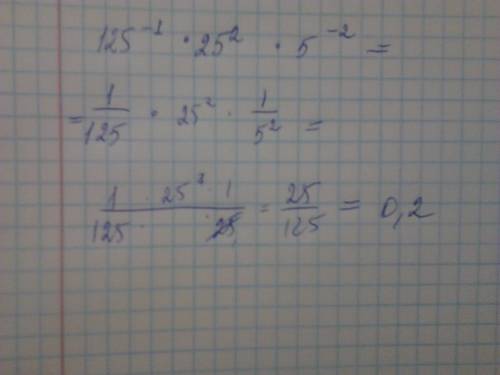 125⁻¹ · 25² · 5⁻² =
= 1/125 · 25² · 1/5² =
1 · 25² · 1 / 125 · 25 = 25/125 = 0,2